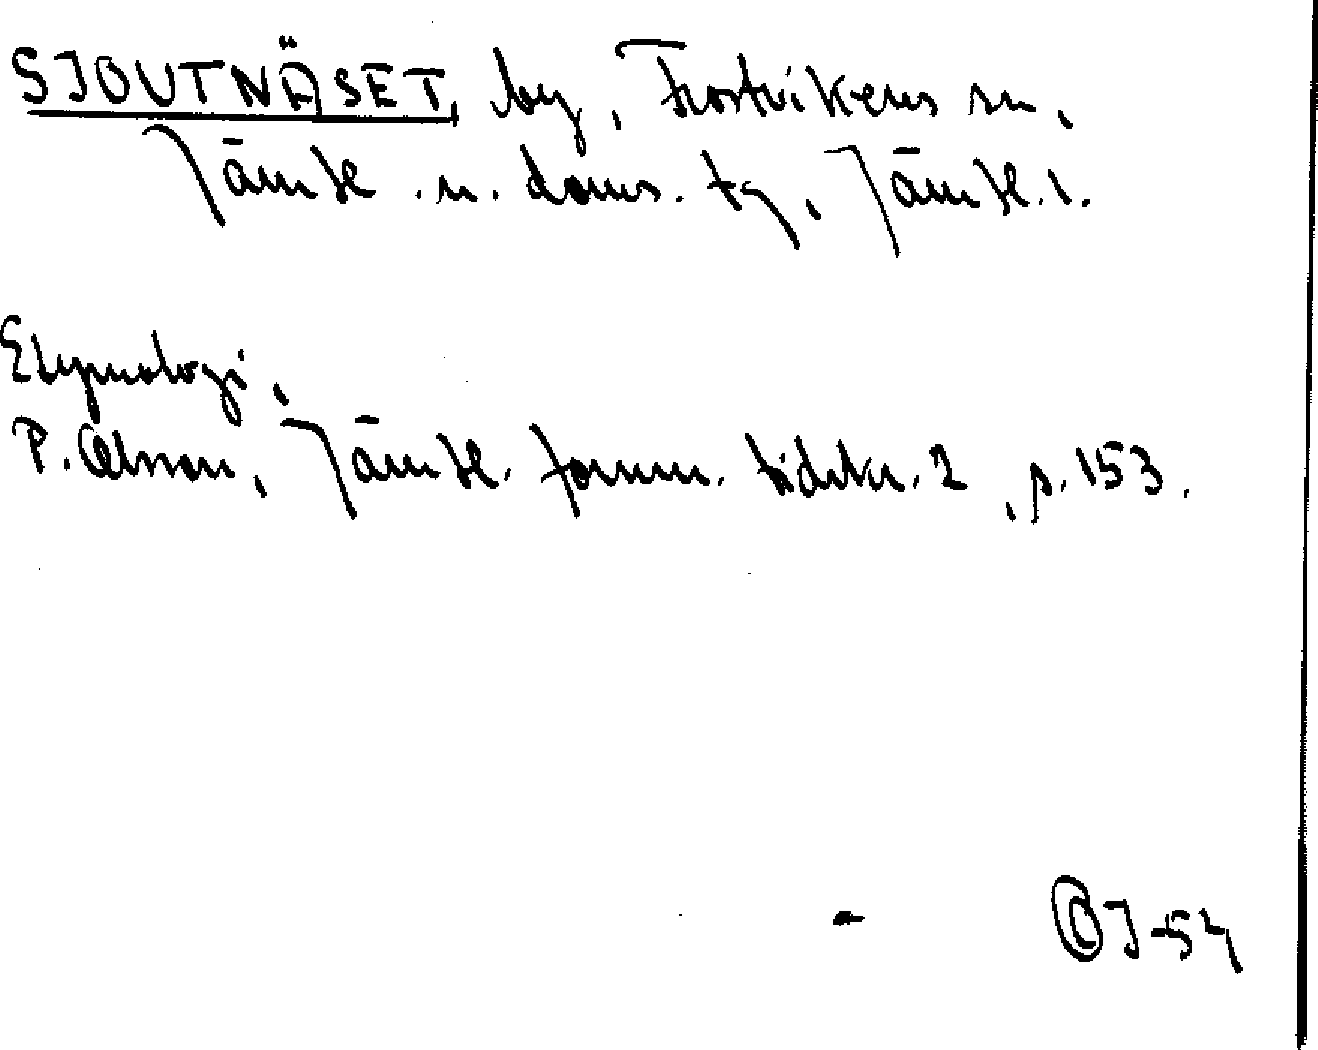 SJOUTNÄSET, by, Frostvikens sn,
Jämtl. n. doms. tg, Jämtl. l.
Etymologi,
P. Olsson, Jämtl. fornm. tidskr. 2, s. 153.
OJ-54